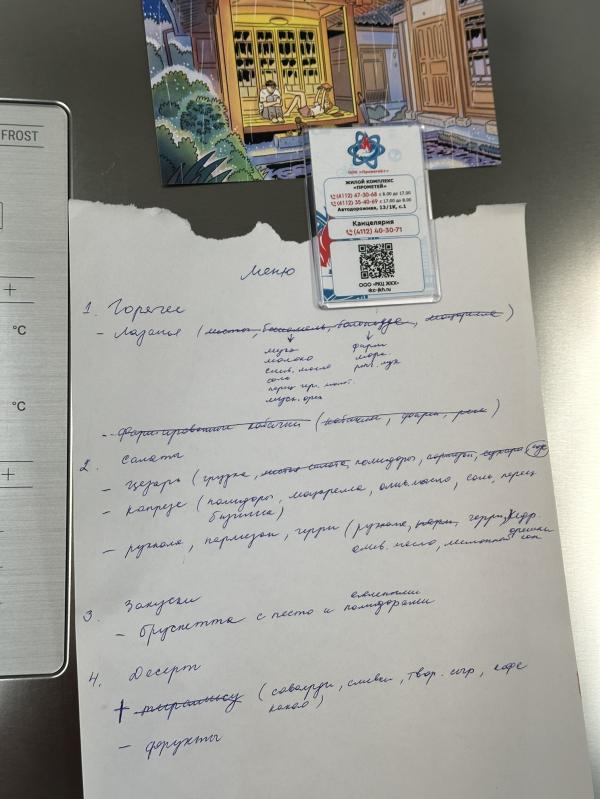 FROST
°C
°C
ООО «Прометей+»
ЖИЛОЙ КОМПЛЕКС
«ПРОМЕТЕЙ»
(4112) 47-30-68 с 8.00 до 17.00
(4112) 35-40-69 с 17.00 до 8.00
Автодорожная, 13/1К, с.1
Канцелярия
(4112) 40-30-71
ООО «РКЦ ЖКХ»
rkc-jkh.ru
Меню
1. Горячее
- Лазанья (листы, бешамель, болоньезе, моцарелла)
мука
молоко
слив. масло
соль
перец чр. мол.
муск. орех
фарш
морк.
реп. лук
- Фаршированные кабачки (кабачки, фарш, рис)
2. Салаты
- Цезарь (грудка, листья салата, помидоры, пармезан, сухари, соус)
- Капрезе (помидоры, моцарелла, олив. масло, соль, перец
базилик)
- руккола, пармезан, черри (руккола, парм, черри, кедр. орешки
олив. масло, лимонный сок
3. Закуски
- Брускетта с песто и вялеными помидорами
4. Десерт
+ тирамису (савоярди, сливки, твор. сыр, кофе
какао)
- фрукты